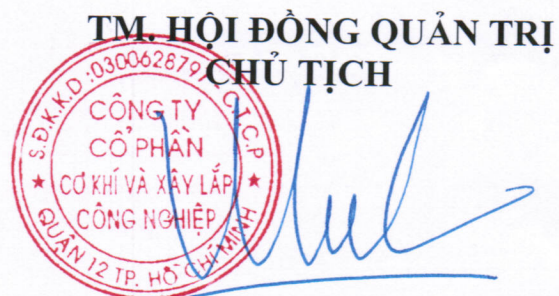 TM. HỘI ĐỒNG QUẢN TRỊ
CHỦ TỊCH
S.Đ.K.K.D:030062879
C.T.C.P
CÔNG TY
CỔ PHẦN
CƠ KHÍ VÀ XÂY LẮP
CÔNG NGHIỆP
QUẬN 12 TP. HỒ CHÍ MINH